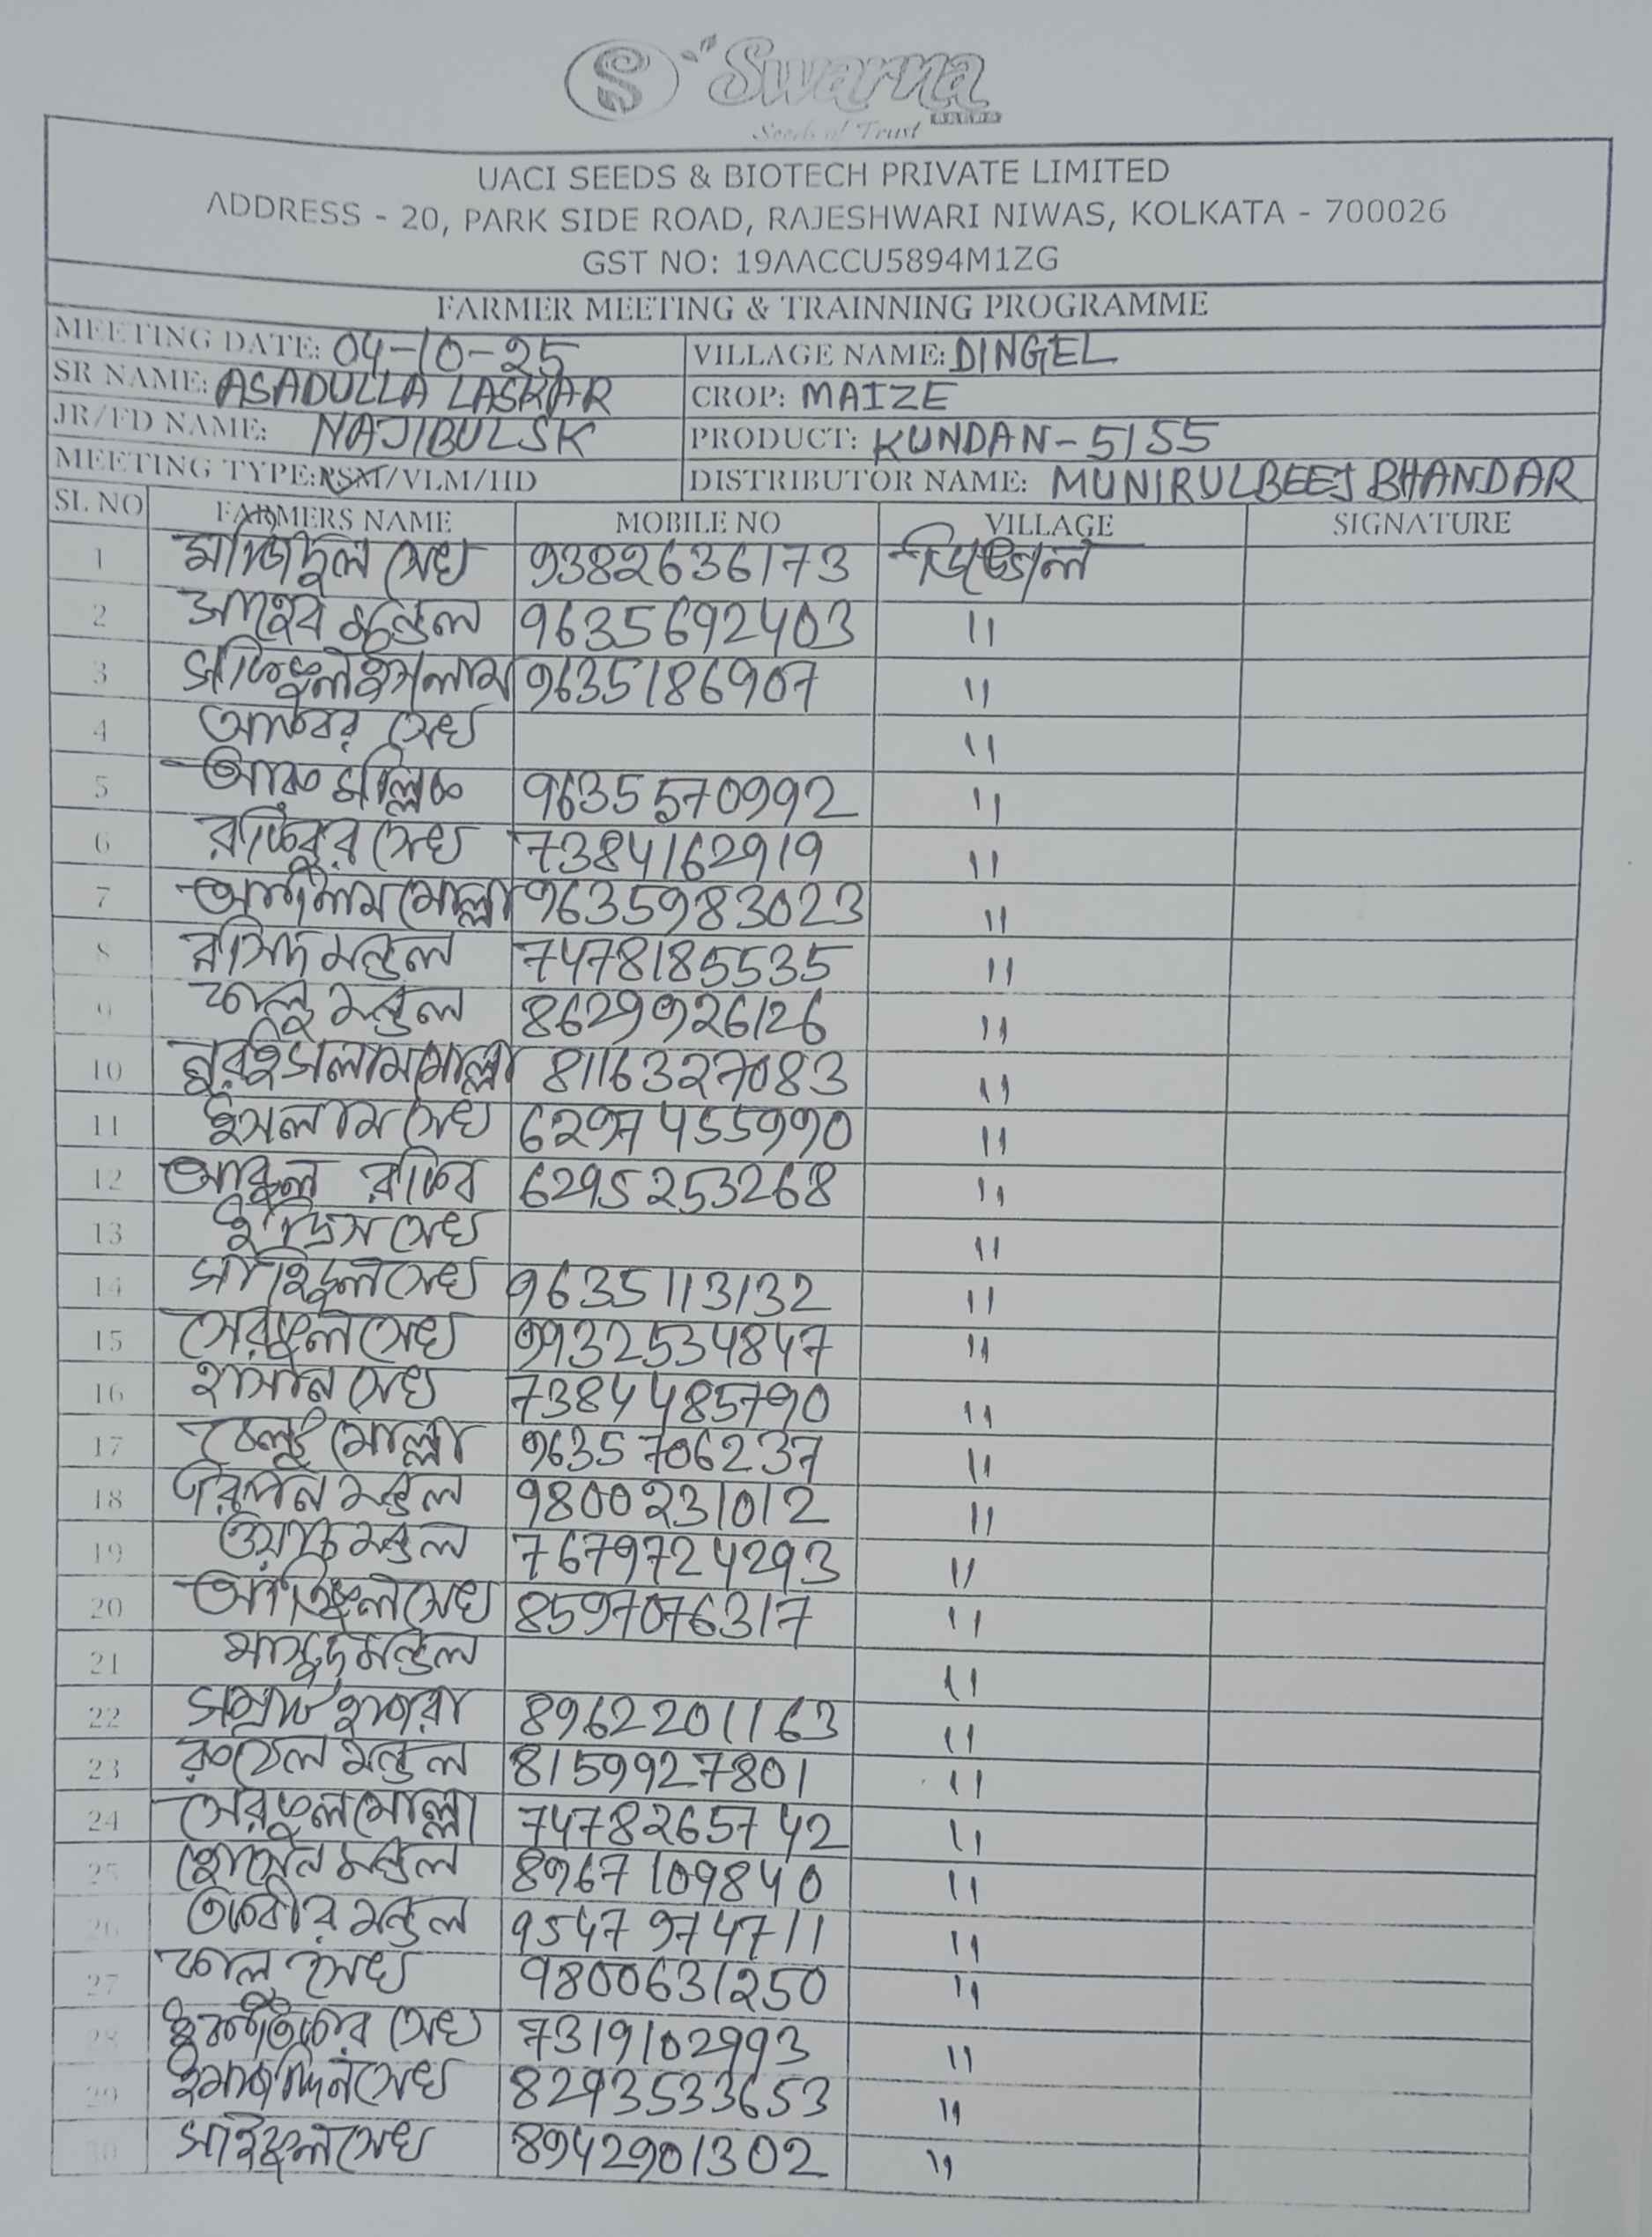 S Swarna
SEEDS
Seeds of Trust
UACI SEEDS & BIOTECH PRIVATE LIMITED
ADDRESS - 20, PARK SIDE ROAD, RAJESHWARI NIWAS, KOLKATA - 700026
GST NO: 19AACCU5894M1ZG
FARMER MEETING & TRAINNING PROGRAMME
MEETING DATE: 04-10-25 VILLAGE NAME: DINGEL
SR NAME: ASADULLA LASKAR CROP: MAIZE
JR/FD NAME: NAJIBUL SK PRODUCT: KUNDAN-5155
MEETING TYPE: RSM/VLM/HD DISTRIBUTOR NAME: MUNIRUL BEEJ BHANDAR
SL NO FARMERS NAME MOBILE NO VILLAGE SIGNATURE
1 মাজিদুল সেখ 9382636173
2 সাহেব মন্ডল 9635692403 11
3 সফিকুল ইসলাম 9635186907 11
4 আকবর সেখ 11
5 মল্লিক 9635570992 11
6 রাকিবুর সেখ 7384162919 11
7 মোল্লা 9635983023 11
8 রসিদ মন্ডল 7478185535 11
9 কালু মন্ডল 8629926126 11
10 নুরইসলাম মোল্লা 8116327083 11
11 ইসলাম সেখ 6297455990 11
12 রাকিব 6295253268 11
13 ইদ্রিস সেখ 11
14 সাহিদুল সেখ 9635113132 11
15 সেরফুল সেখ 9932534847 11
16 হাসান সেখ 7384485790 11
17 মোল্লা 9635706237 11
18 মন্ডল 9800231012 11
19 মন্ডল 7679724293 11
20 আতিকুল সেখ 8597076317 11
21 মাসুদ মন্ডল 11
22 সম্রাট হাজরা 8962201163 11
23 রুহেল মন্ডল 8159927801 11
24 সেরফুল মোল্লা 7478265742 11
25 হোসেন মন্ডল 8967109840 11
26 মন্ডল 9547974711 11
27 কালু সেখ 9800631250 11
28 সেখ 7319102993 11
29 সেখ 8293533653 11
30 সাইফুল সেখ 8942901302 11